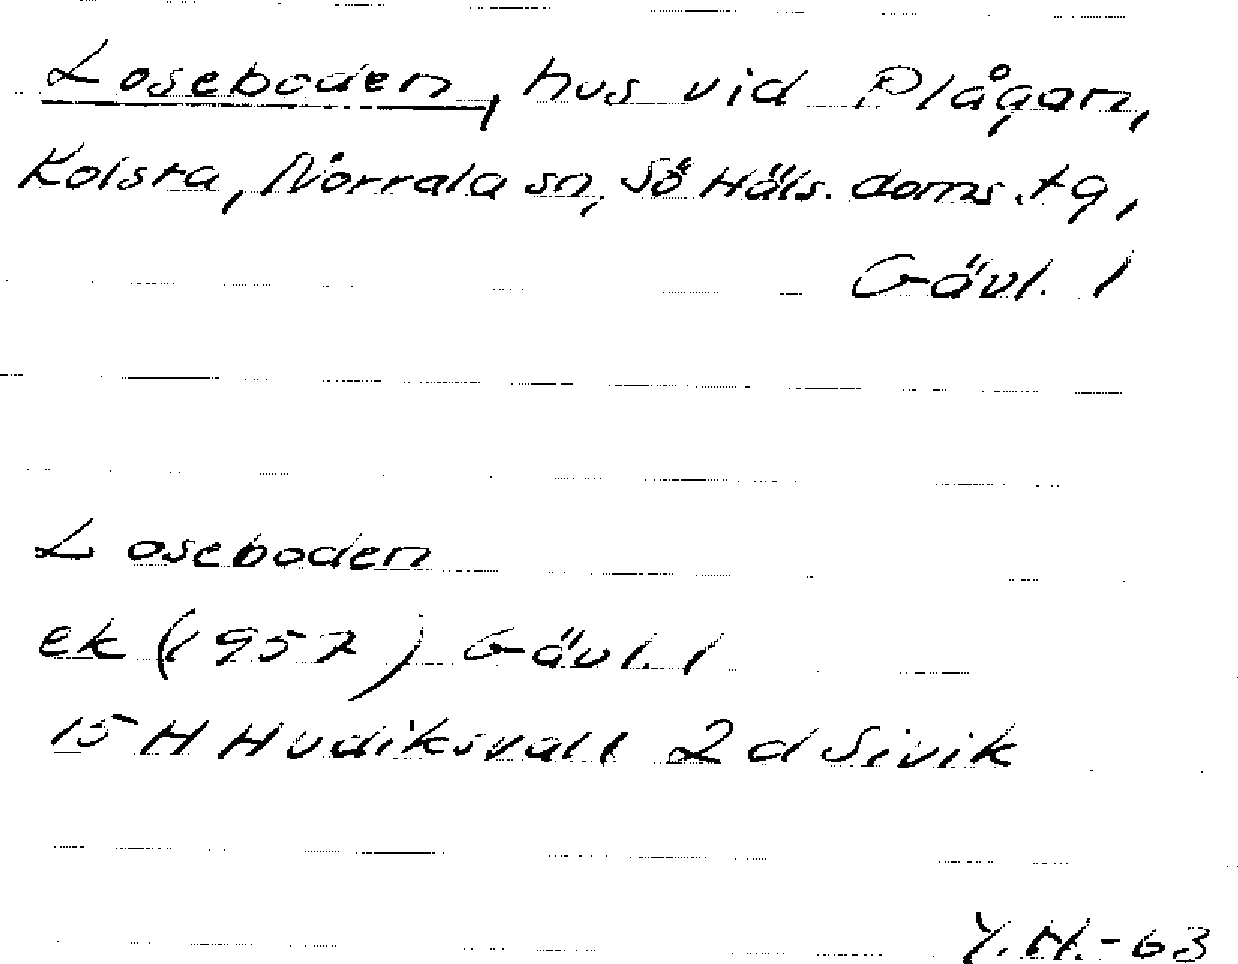 Loseboden, hus vid Plågan,
Kolsta, Norrala sn, Sö Häls. doms. tg,
Gävl. l
Loseboden
ek (1957) Gävl. l
15 H Hudiksvall 2 d Sivik
Y.H.-63